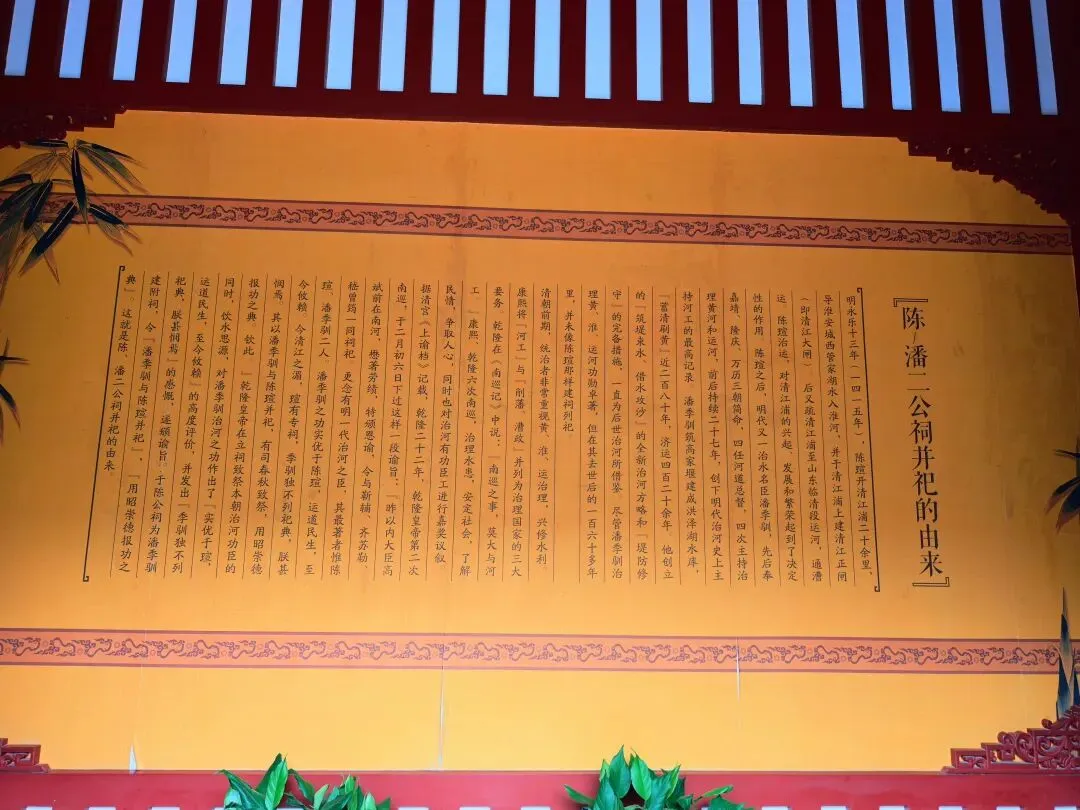 『陈、潘二公祠并祀的由来』
明永乐十三年（一四一五年），陈瑄开清江浦二十余里，
导淮安城西管家湖水入淮河，并于清江浦上建清江正闸
（即清江大闸），后又疏清江浦至山东临清段运河，通漕
运。陈瑄治运，对清江浦的兴起、发展和繁荣起到了决定
性的作用。陈瑄之后，明代又一治水名臣潘季驯，先后奉
嘉靖、隆庆、万历三朝简命，四任河道总督，四次主持治
理黄河和运河，前后持续二十七年，创下明代治河史上主
持河工的最高记录。潘季驯筑高家堰建成洪泽湖水库，
『蓄清刷黄』近二百八十年，济运四百二十余年。他创立
的『筑堤束水，借水攻沙』的全新治河方略和『堤防修
守』的完备措施，一直为后世治河所借鉴。尽管潘季驯治
理黄、淮、运河功勋卓著，但在其去世后的一百六十多年
里，并未像陈瑄那样建祠列祀。
清朝前期，统治者非常重视黄、淮、运治理，兴修水利
康熙将『河工』与『削藩、漕政』并列为治理国家的三大
要务。乾隆在《南巡记》中说：『南巡之事，莫大与河
工。』康熙、乾隆六次南巡，治理水患，安定社会，了解
民情，争取人心，同时也对治河有功臣工进行嘉奖议叙
据清宫《上谕档》记载，乾隆二十二年，乾隆皇帝第二次
南巡，于二月初六日下过这样一段谕旨：『昨以内大臣高
斌前在南河，懋著劳绩，特颁恩谕，今与靳辅、齐苏勒
嵇曾筠一同祠祀。更念有明一代治河之臣，其最著者惟陈
瑄、潘季驯二人。潘季驯之功实优于陈瑄。运道民生，至
今攸赖。今清江之湄，瑄有专祠，季驯独不列祀典，朕甚
悯焉。其以潘季驯与陈瑄并祀，有司春秋致祭，用昭崇德
报功之典。钦此。』乾隆皇帝在立祠致祭本朝治河功臣的
同时，饮水思源，对潘季驯治河之功作出了『实优于瑄，
运道民生，至今攸赖』的高度评价，并发出『季驯独不列
祀典，朕甚悯焉』的感慨，遂颁谕旨，于陈公祠为潘季驯
建附祠，令『潘季驯与陈瑄并祀』，『用昭崇德报功之
典』。这就是陈、潘二公祠并祀的由来